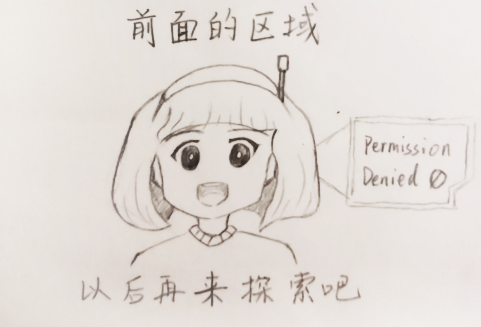 前面的区域
Permission
Denied ∅
以后再来探索吧